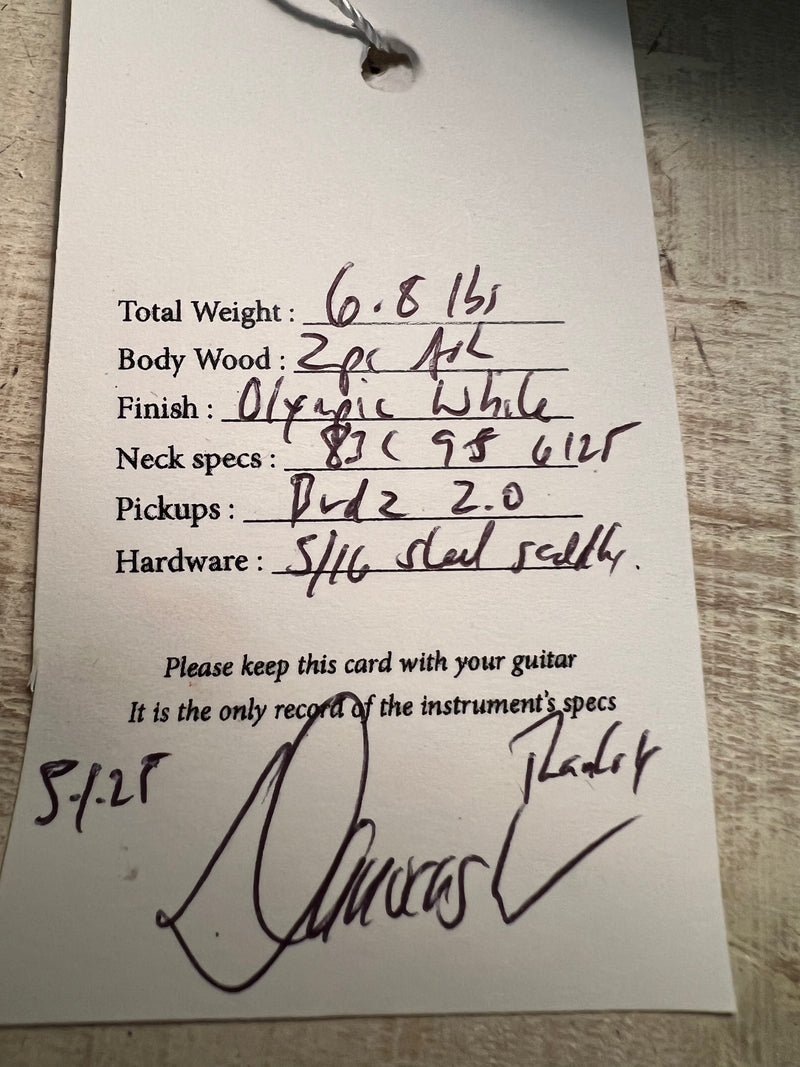 Total Weight : 6.8 lbs
Body Wood : 2pc Ash
Finish : Olympic White
Neck specs : 83C 95 6125
Pickups : 2.0
Hardware : 5/16 steel saddles.
Please keep this card with your guitar
It is the only record of the instrument's specs
5.1.25